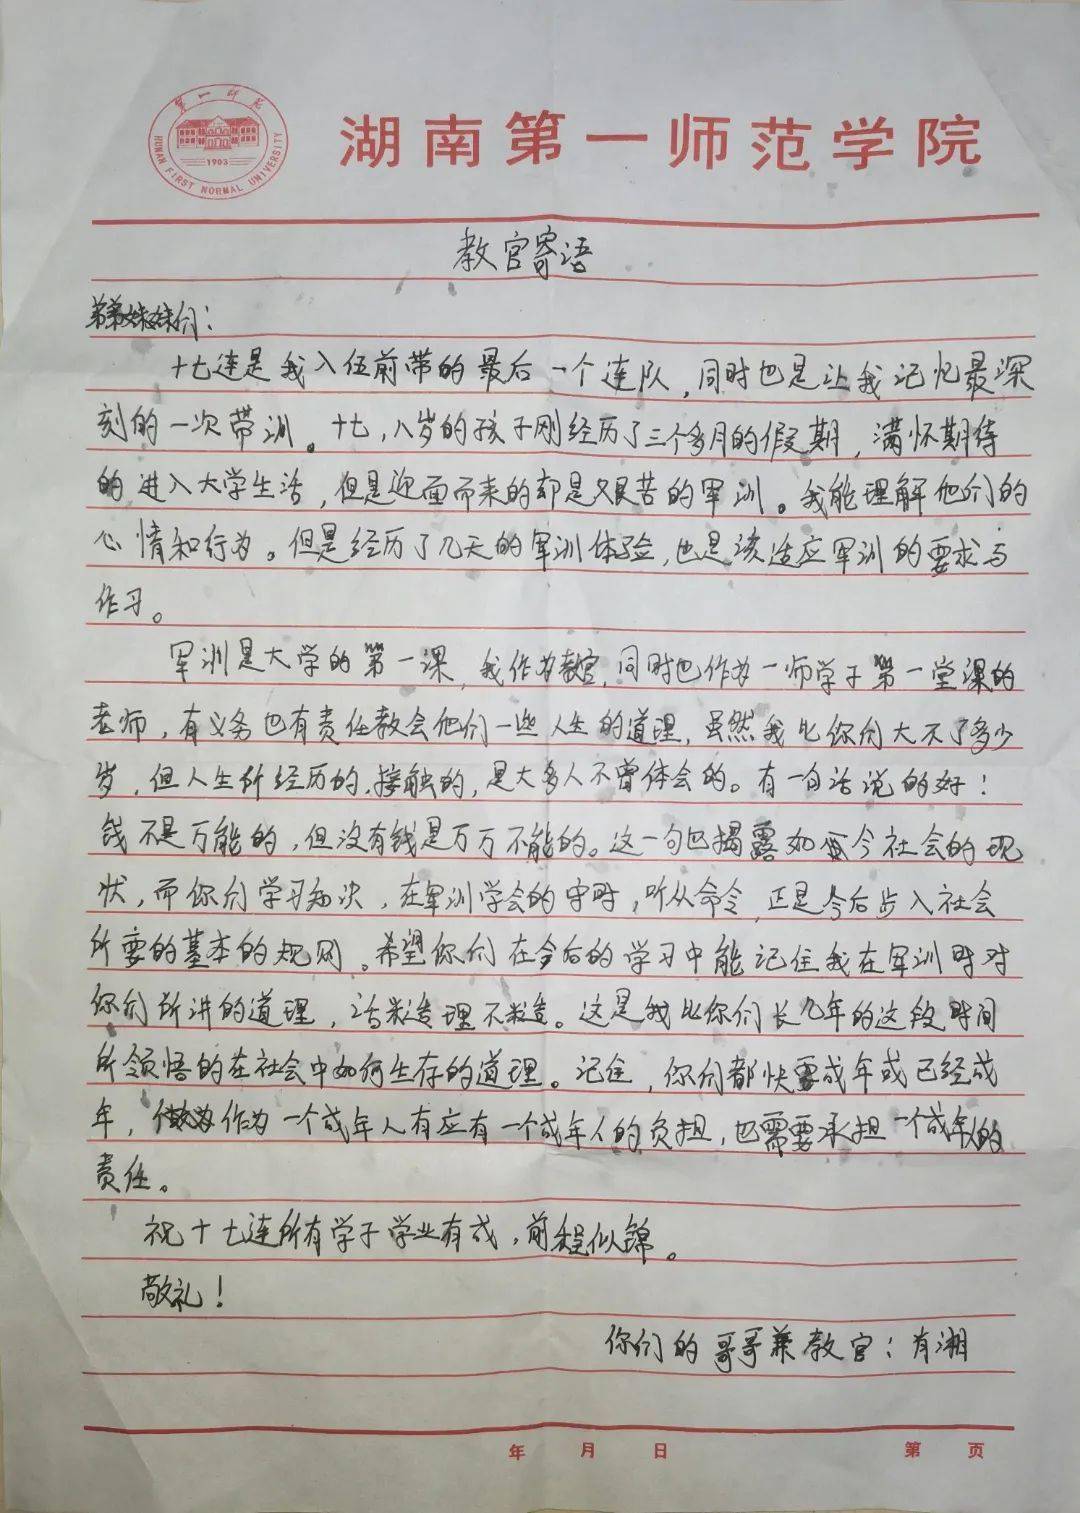 第一师范
HUNAN FIRST NORMAL UNIVERSITY
1903
湖南第一师范学院
教官寄语
弟弟妹妹们：
十七连是我入伍前带的最后一个连队，同时也是让我记忆最深
刻的一次带训。十七，八岁的孩子刚经历了三个多月的假期，满怀期待
的进入大学生活，但是迎面而来的却是艰苦的军训。我能理解他们的
心情和行为。但是经历了几天的军训体验，也是该适应军训的要求与
作习。
军训是大学的第一课，我作为教官，同时也作为一师学子第一堂课的
老师，有义务也有责任教会他们一些人生的道理，虽然我比你们大不了多少
岁，但人生所经历的，接触的，是大多人不曾体会的。有一句话说的好：
钱不是万能的，但没有钱是万万不能的。这一句已揭露如今社会的现
状，而你们学习知识，在军训学会的守时，听从命令，正是今后步入社会
所要的基本的规则。希望你们在今后的学习中能记住我在军训时对
你们所讲的道理，话糙理不糙。这是我比你们长几年的这段时间
所领悟的在社会中如何生存的道理。记住，你们都快要成年或已经成
年，作为一个成年人有应有一个成年人的负担，也需要承担一个成年人的
责任。
祝十七连所有学子学业有成，前程似锦。
敬礼！
你们的哥哥兼教官：肖湘
年 月 日 第 页